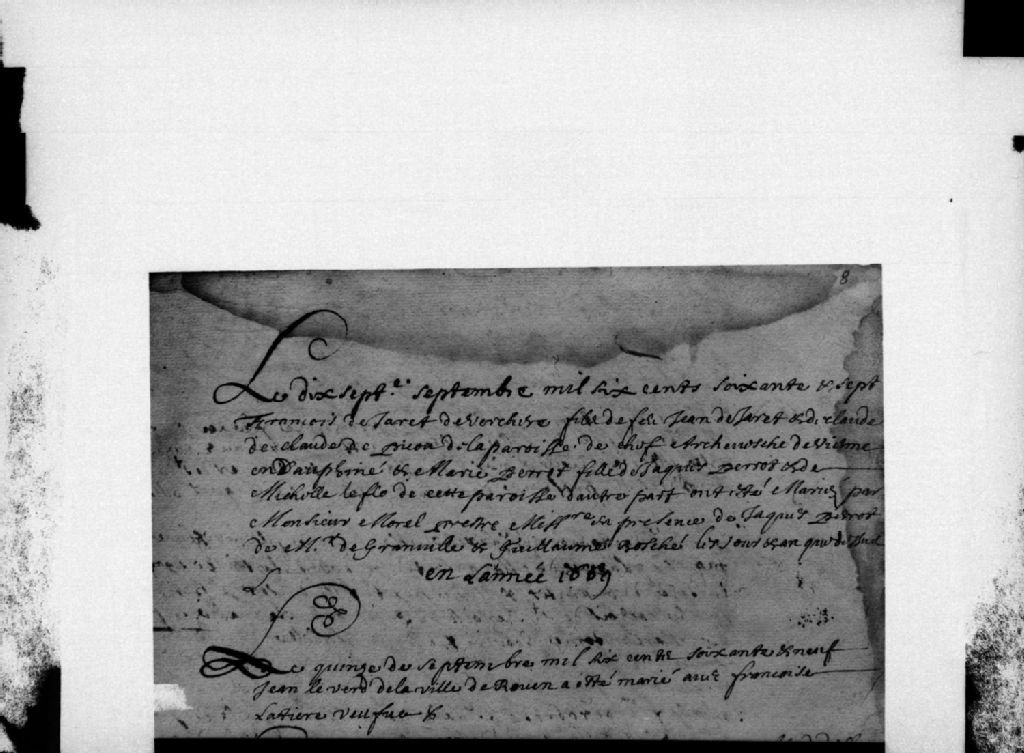 8
Le dix sept.e septembre mil six cents soixante & sept
francois de Jaret de verchere fils de feu Jean de Jaret & de claude
de claude de pecou de la paroisse de chef Archeuesché de Vienne
en Dauephiné & Marie perrot fille de Jaques perrot & de
Michelle le flo de cette paroisse d'autre part ont esté Mariez par
Monsieur Morel prestre Miss.re en presence de Jaques perrot
de M.r de Granville & Guillaume les Jour & an que dessus
en Lannee 1669
Le quinze de septembre mil six cents soixante & neuf
Jean le verd de la ville de Rouen a esté marié auec francoise
Latiere veufue &